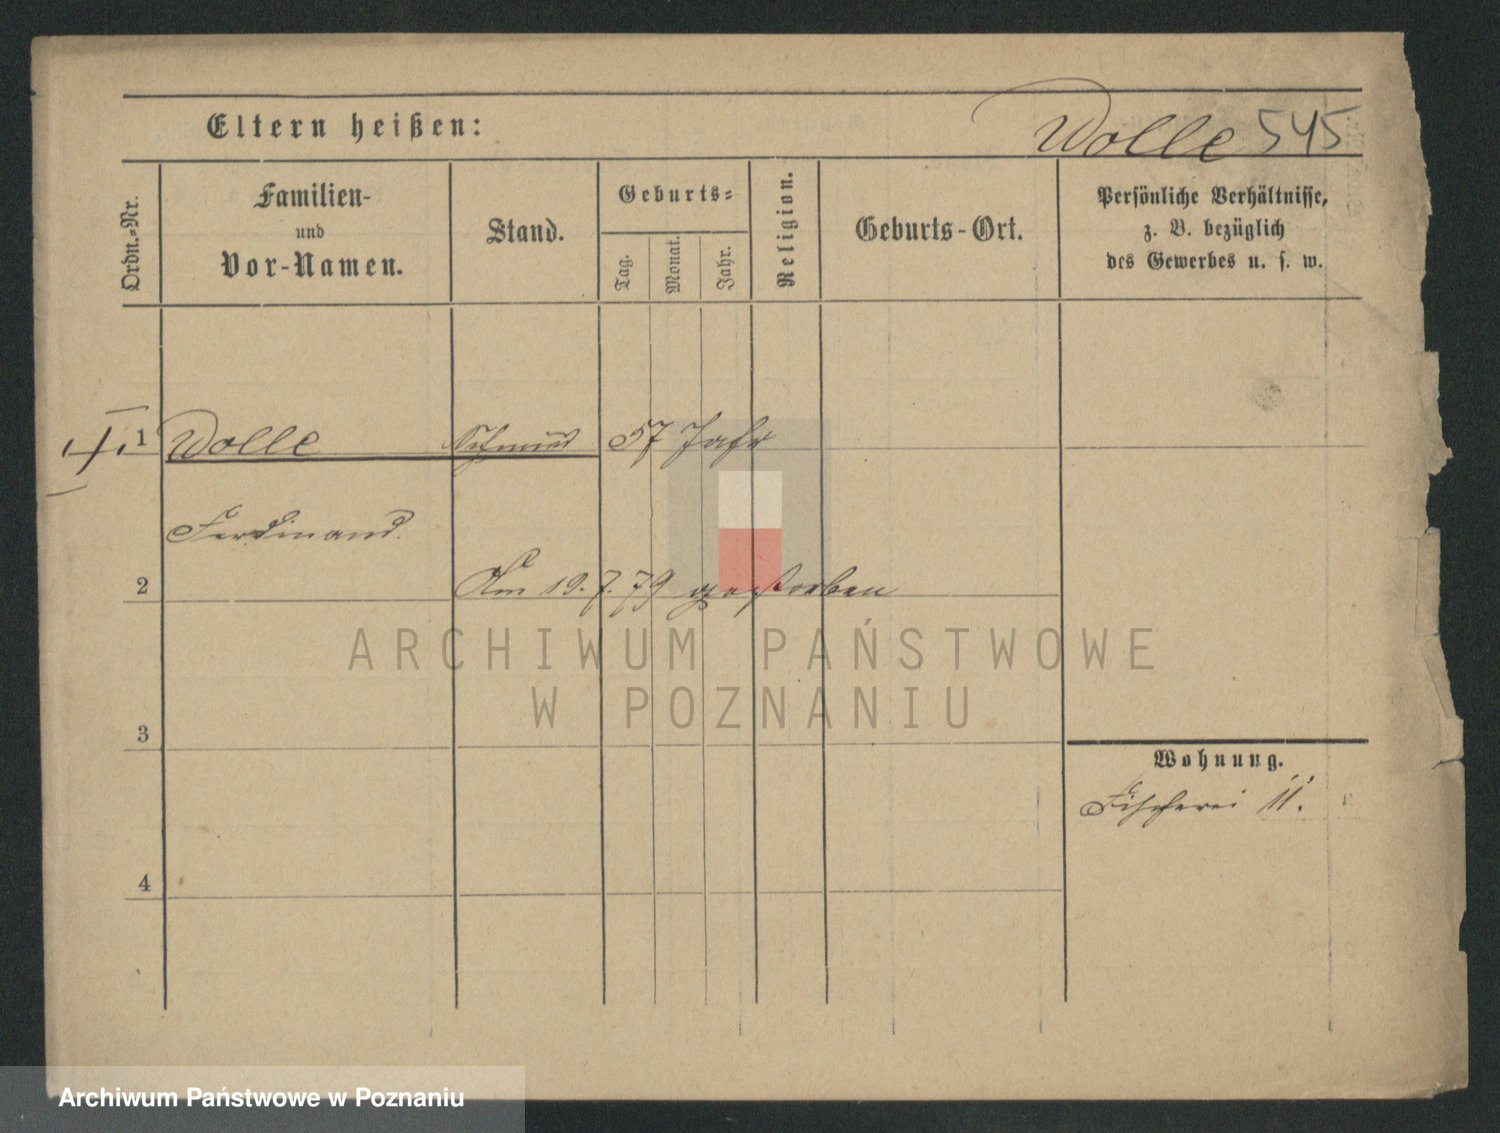 Eltern heißen:
Wolle 545
Ordn.-Nr.
Familien-
und
Vor-Namen.
Stand.
Geburts-
Tag.
Monat.
Jahr.
Religion.
Geburts-Ort.
Persönliche Verhältnisse,
z. B. bezüglich
des Gewerbes u. s. w.
1 Wolle Schmied 57 Jahr
Ferdinand.
2 Am 19. 7. 79 gestorben
ARCHIWUM PAŃSTWOWE
W POZNANIU
3
Wohnung.
Fischerei 11.
4
Archiwum Państwowe w Poznaniu